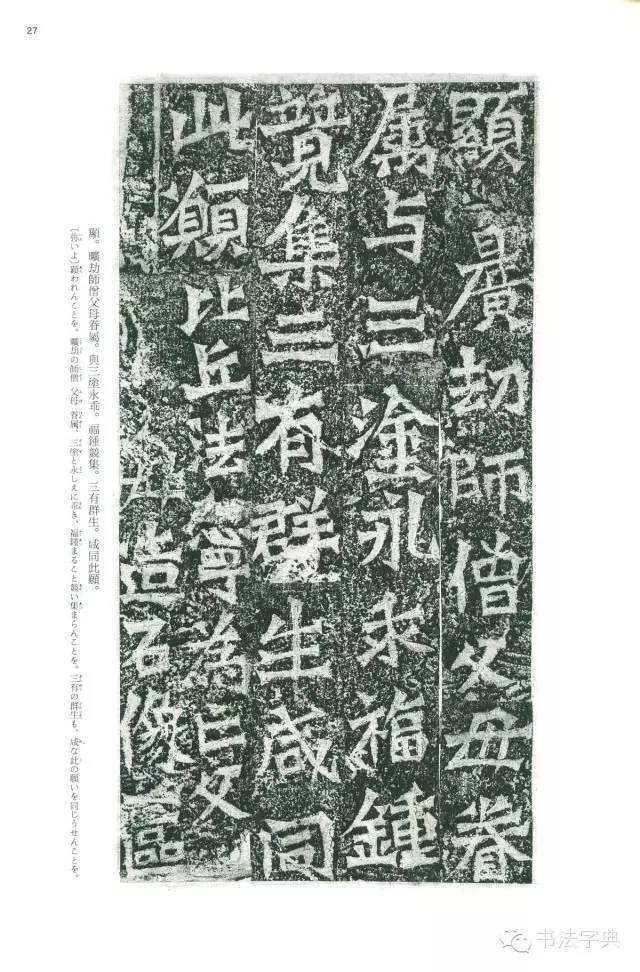 27
顯曠劫師僧父母眷
属与三塗永乖福鍾
竟集三有群生咸同
此願比丘法寧為亡父
母造石像區
顯。曠劫師僧父母眷屬。與三塗永乖。福鍾競集。三有群生。咸同此願。
[弥いよ]顕われんことを。曠劫の師僧 父母 眷属、三塗と永しえに乖き、福鍾まること競い集まらんことを。三有の群生も、咸な此の願いを同じうせんことを。
书法字典